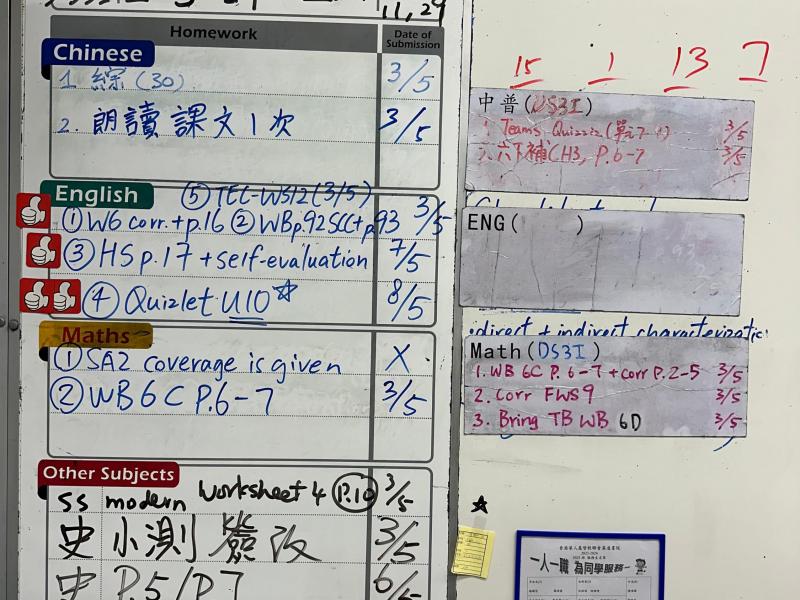 11,29
Homework
Date of Submission
Chinese
1. 綜(30) 3/5
2. 朗讀課文1次 3/5
English
⑤ TEC-WS12(3/5)
① W6 corr.+p.16 ② WBp.92SCC+p.93 3/5
③ HS p.17 + self-evaluation 7/5
④ Quizlet U10☆ 8/5
Maths
① SA2 coverage is given X.
② WB 6C P.6-7 3/5
Other Subjects
SS modern worksheet 4 P.10 3/5
史 小測 簽改 3/5
史 P.5/P7 6/5
15 1 13 7
中普(DS3I)
1. Teams Quizziz 3/5
2. 六下補CH3, P.6-7 3/5
ENG( )
direct + indirect characterizatic
Math(DS3I)
1. WB 6C P.6-7 + corr P.2-5 3/5
2. Corr FWS9 3/5
3. Bring TB WB 6D 3/5
★
一人一職 為同學服務